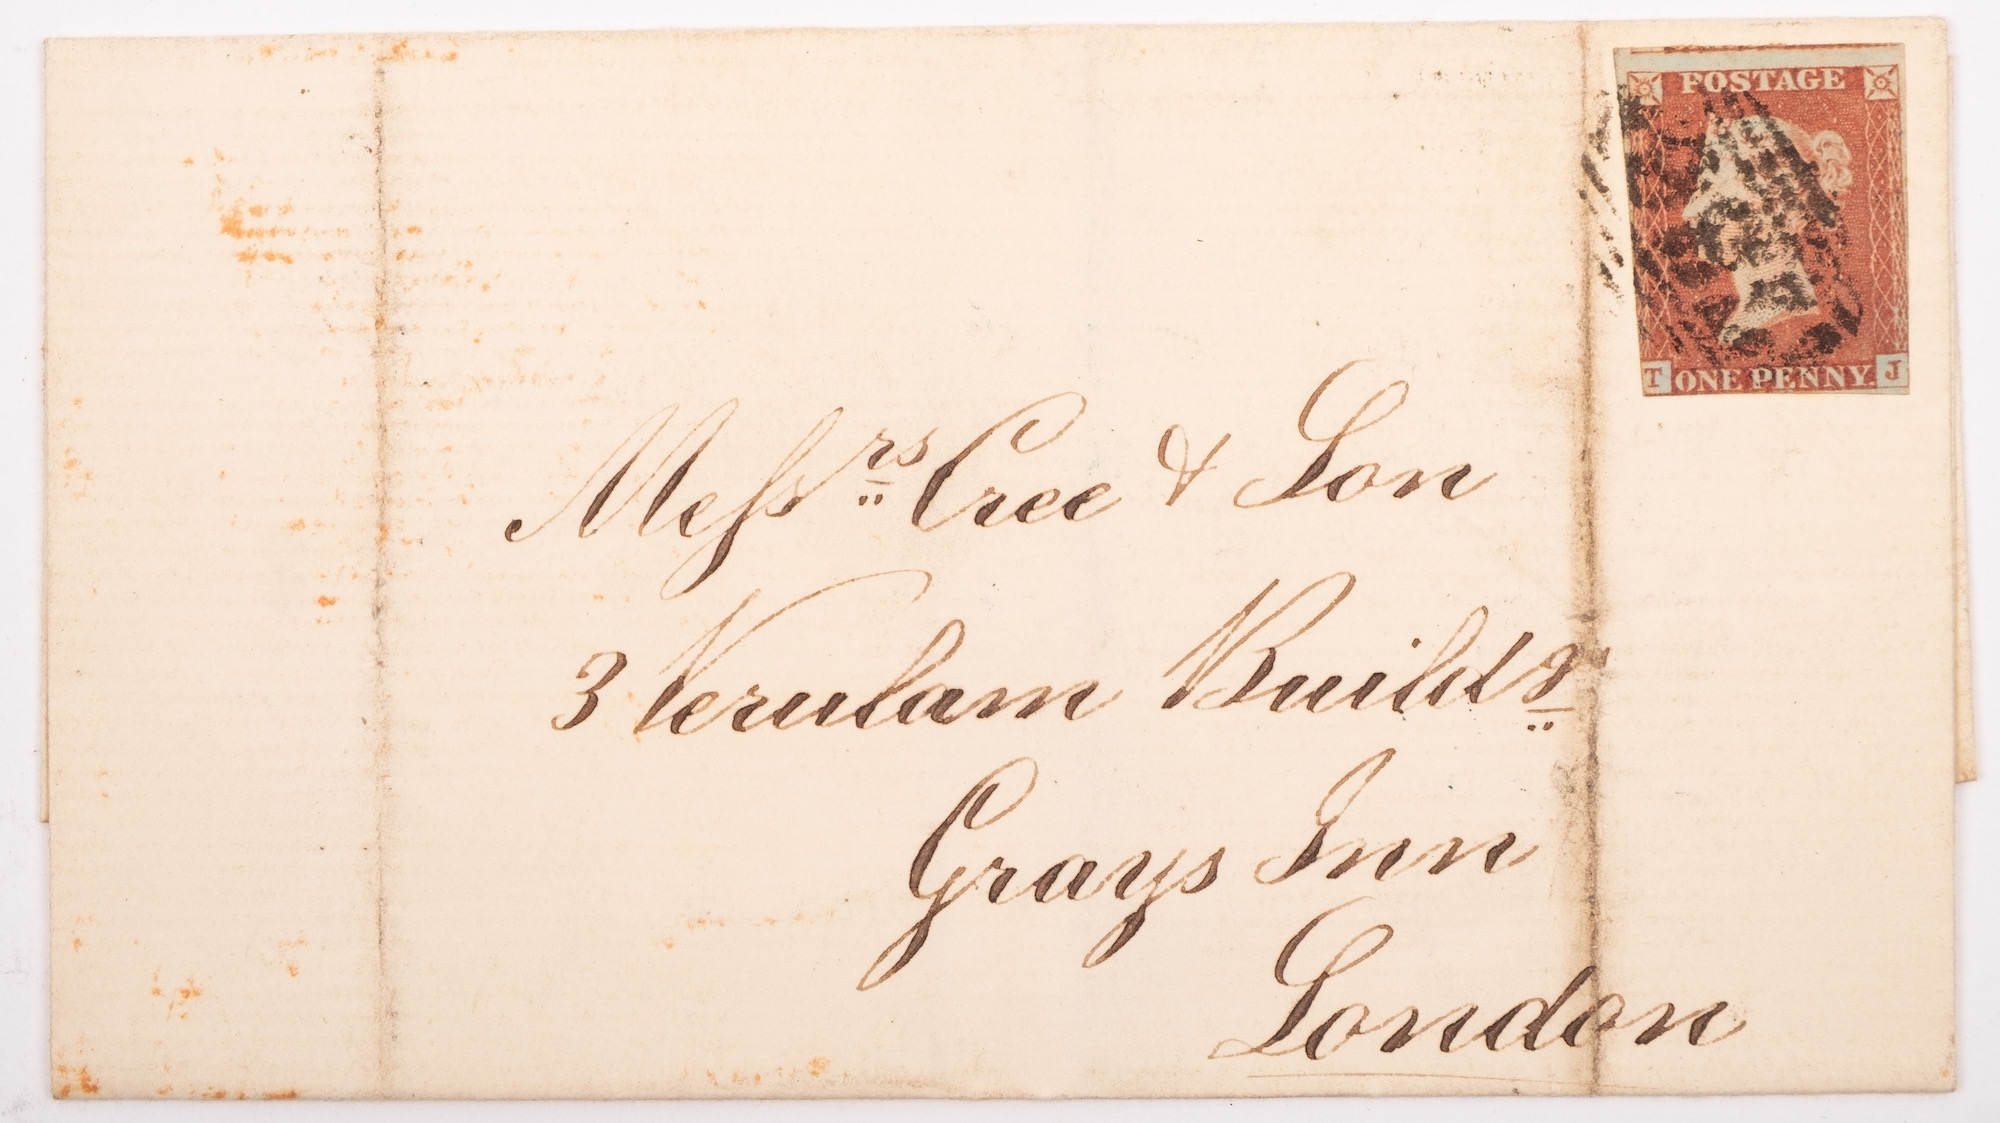 POSTAGE
T ONE PENNY. J
Messrs Cree & Son
3 Verulam Buildgs
Grays Inn
London